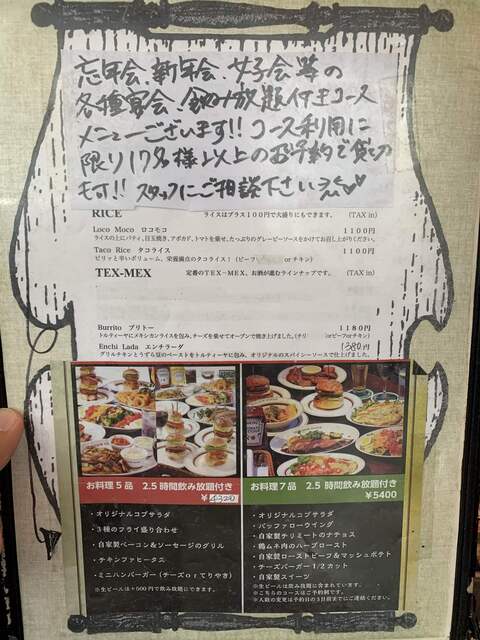 忘年会、新年会、女子会等の
各種宴会!飲み放題付きコース
メニューございます!!コース利用に
限り17名様以上のご予約で貸切
も可!!スタッフにご相談下さい
RICE ライスはプラス100円で大盛りにもできます。 (TAX in)
Loco Moco ロコモコ 1100円
ライスの上にパティ、目玉焼き、アボカド、トマトを乗せ、たっぷりのグレービーソースをかけてお召し上がりください。
Taco Rice タコライス 1100円
ピリッと辛いボリューム、栄養満点のタコライス!(ビーフ orチキン)
TEX-MEX 定番のTEX-MEX、お酒が進むラインナップです。 (TAX in)
Burrito ブリトー 1180円
トルティーヤにメキシカンライスを包み、チーズを乗せてオーブンで焼き上げました。(チリ orビーフorチキン)
Enchi Lada エンチラーダ 1380円
グリルチキンとうずら豆のペーストをトルティーヤに包み、オリジナルのスパイシーソースで仕上げました。
お料理5品 2.5時間飲み放題付き
¥4320
・オリジナルコブサラダ
・3種のフライ盛り合わせ
・自家製ベーコン&ソーセージのグリル
・チキンファヒータニ
・ミニハンバーガー(チーズorてりやき)
※生ビールは+500円で飲み放題にできます。
お料理7品 2.5時間飲み放題付き
¥5400
・オリジナルコブサラダ
・バッファローウイング
・自家製チリミートのナチョス
・鶏ムネ肉のハーブロースト
・自家製ローストビーフ&マッシュポテト
・チーズバーガー1/2カット
・自家製スイーツ
※生ビールは飲み放題に含まれています。
※こちらのコースはご予約制です。
※人数の変更は予約日の3日前までにご連絡ください。